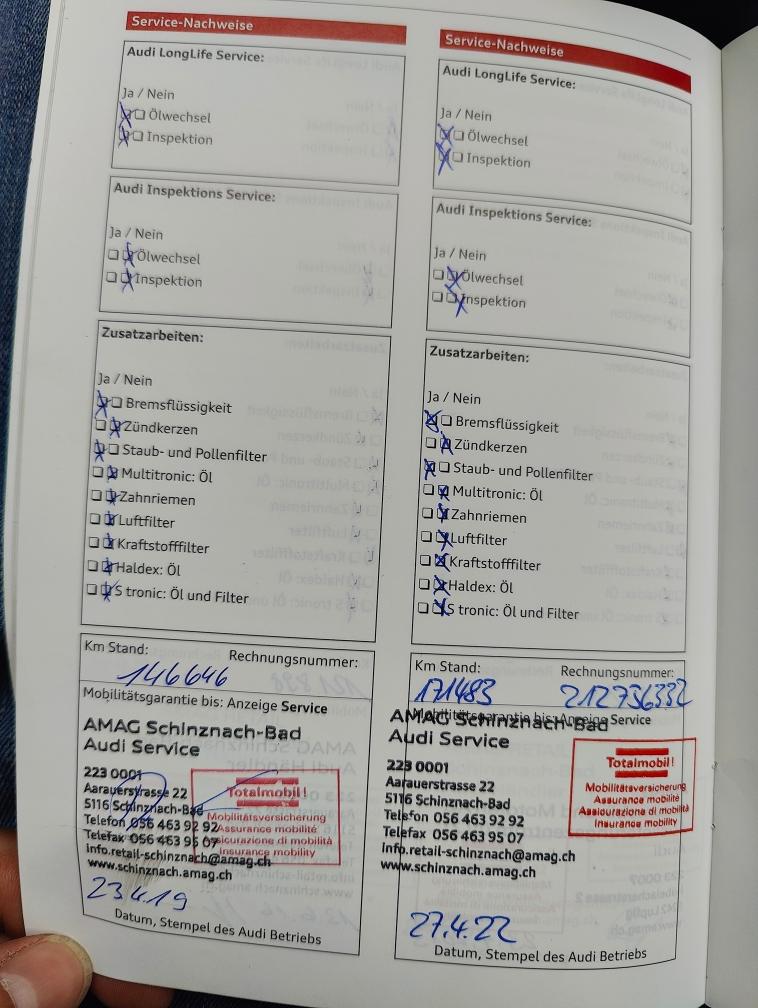 Service-Nachweise
Audi LongLife Service:
Ja / Nein
Ölwechsel
Inspektion
Audi Inspektions Service:
Ja / Nein
Ölwechsel
Inspektion
Zusatzarbeiten:
Ja / Nein
Bremsflüssigkeit
Zündkerzen
Staub- und Pollenfilter
Multitronic: Öl
Zahnriemen
Luftfilter
Kraftstofffilter
Haldex: Öl
S tronic: Öl und Filter
Km Stand: Rechnungsnummer:
146646
Mobilitätsgarantie bis: Anzeige Service
AMAG Schinznach-Bad
Audi Service
223 0001
Aarauerstrasse 22
5116 Schinznach-Bad
Telefon 056 463 92 92
Telefax 056 463 95 07
info.retail-schinznach@amag.ch
www.schinznach.amag.ch
Totalmobil!
Mobilitätsversicherung
Assurance mobilité
Assicurazione di mobilità
Insurance mobility
23.4.19
Datum, Stempel des Audi Betriebs
Service-Nachweise
Audi LongLife Service:
Ja / Nein
Ölwechsel
Inspektion
Audi Inspektions Service:
Ja / Nein
Ölwechsel
Inspektion
Zusatzarbeiten:
Ja / Nein
Bremsflüssigkeit
Zündkerzen
Staub- und Pollenfilter
Multitronic: Öl
Zahnriemen
Luftfilter
Kraftstofffilter
Haldex: Öl
S tronic: Öl und Filter
Km Stand: Rechnungsnummer:
171483 212756332
Mobilitätsgarantie bis: Anzeige Service
AMAG Schinznach-Bad
Audi Service
223 0001
Aarauerstrasse 22
5116 Schinznach-Bad
Telefon 056 463 92 92
Telefax 056 463 95 07
info.retail-schinznach@amag.ch
www.schinznach.amag.ch
Totalmobil!
Mobilitätsversicherung
Assurance mobilité
Assicurazione di mobilità
Insurance mobility
27.4.22
Datum, Stempel des Audi Betriebs